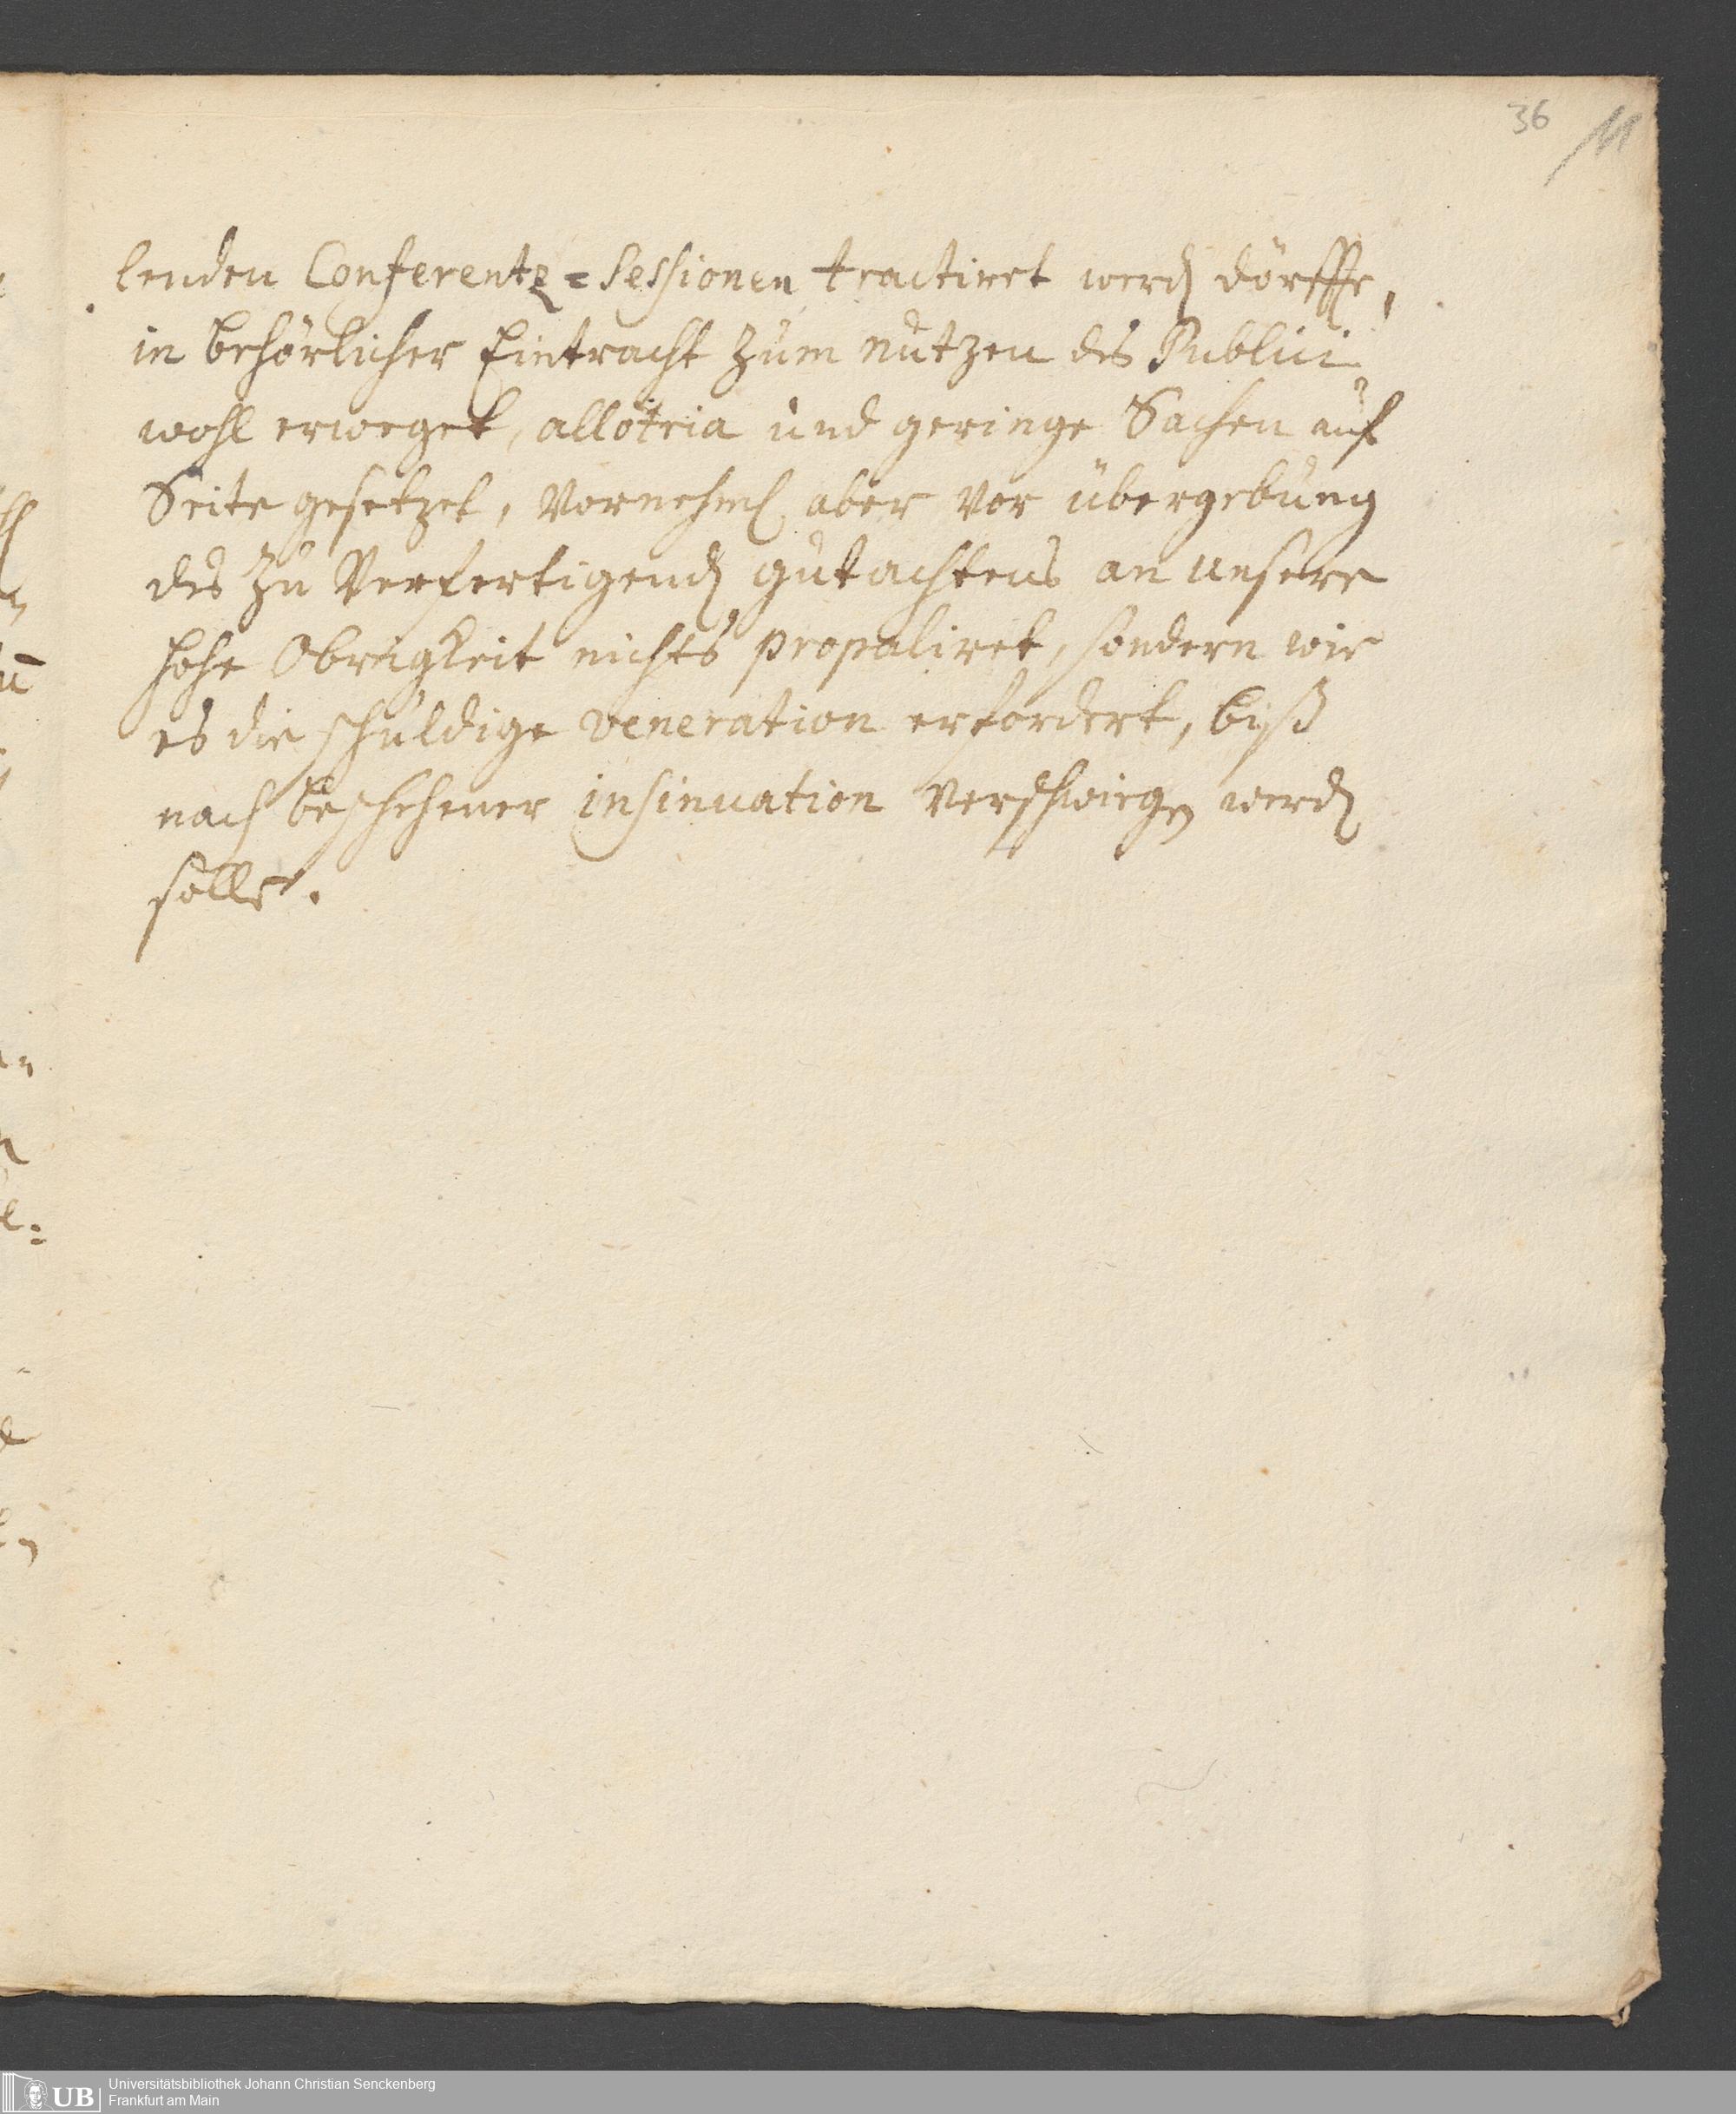 36 11
lenden Conferentz=Sessionen tractiret werd dörffte,
in behörlicher Eintracht zum nutzen des Publici
wohl erweget, allotria und geringe Sachen auf
Seite gesetzet, vornehml aber vor übergebung
des zu verfertigend gutachtens an unsere
hohe Obrigkeit nichts propaliret, sondern wie
es die schuldige veneration erfordert, biß
nach beschehener insinuation verschwiegen werd
sollte.
UB
Universitätsbibliothek Johann Christian Senckenberg
Frankfurt am Main